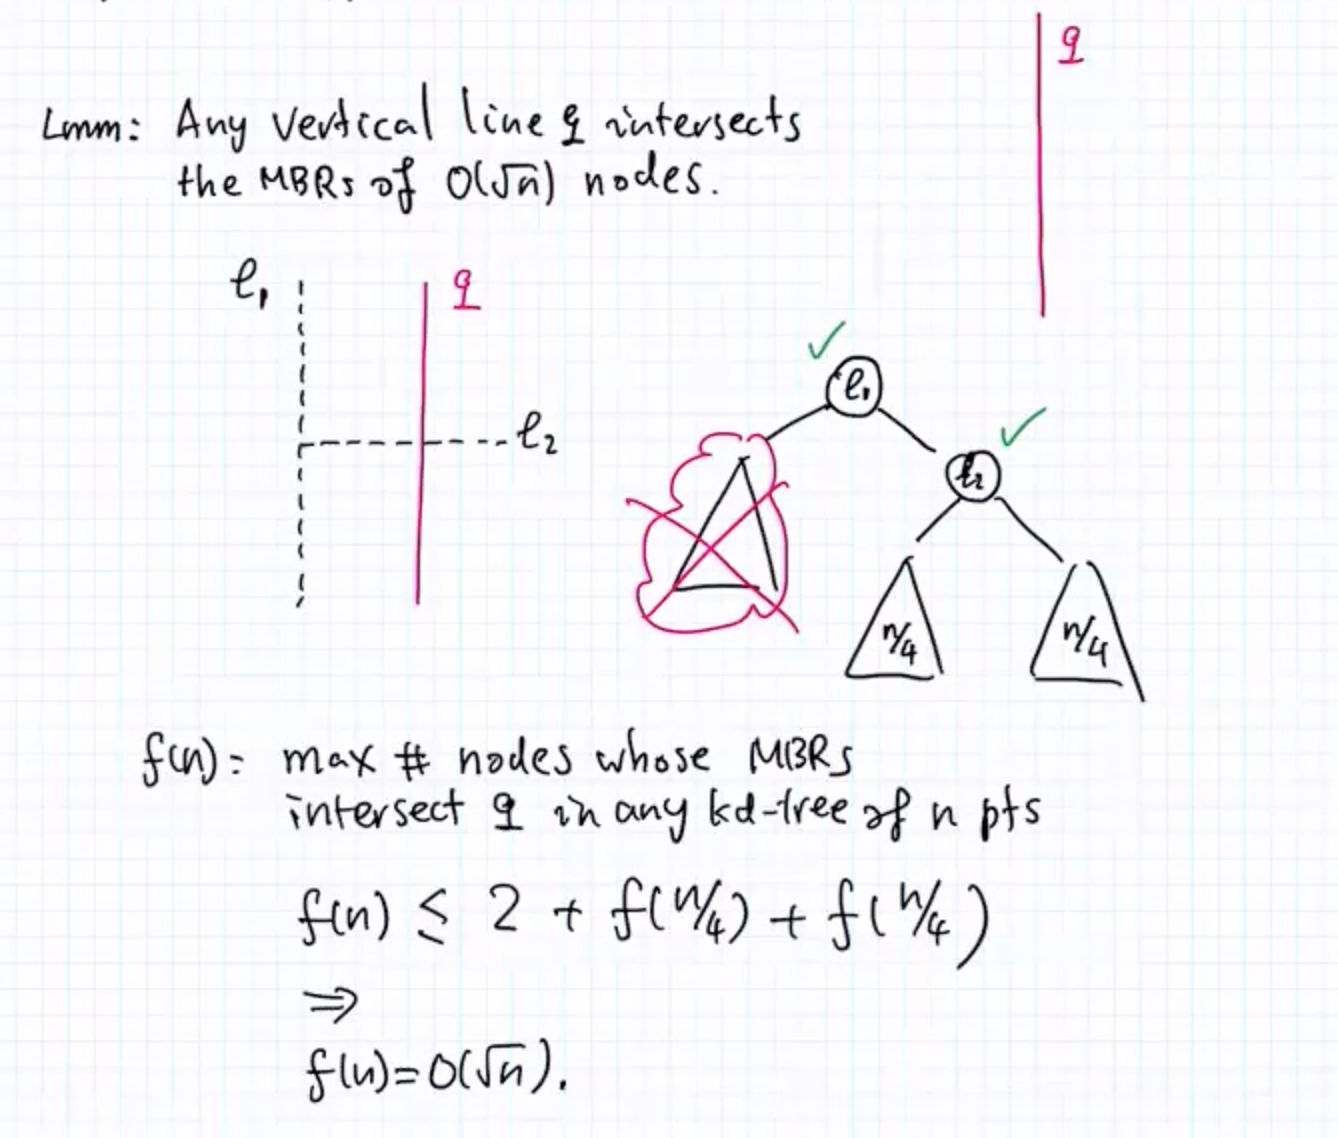 q
Lmm: Any vertical line q intersects
the MBRs of O(√n) nodes.
ℓ₁
q
ℓ₂
ℓ₁
ℓ₂
n/4
n/4
f(n): max # nodes whose MBRs
intersect q in any kd-tree of n pts
f(n) ≤ 2 + f(n/4) + f(n/4)
⇒
f(n)=O(√n).